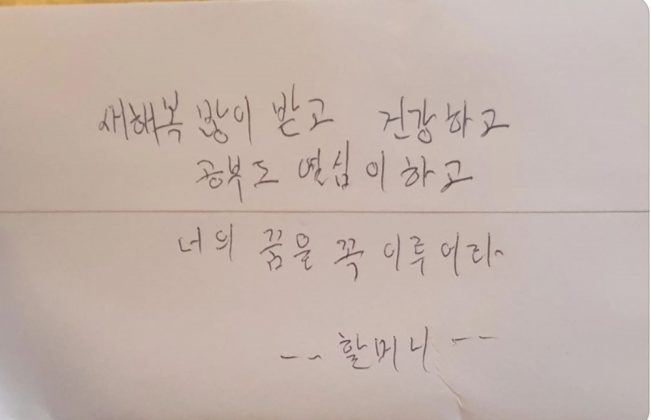 새해복 많이 받고 건강하고
공부도 열심이하고
너의 꿈을 꼭 이루어라.
-- 할머니 --